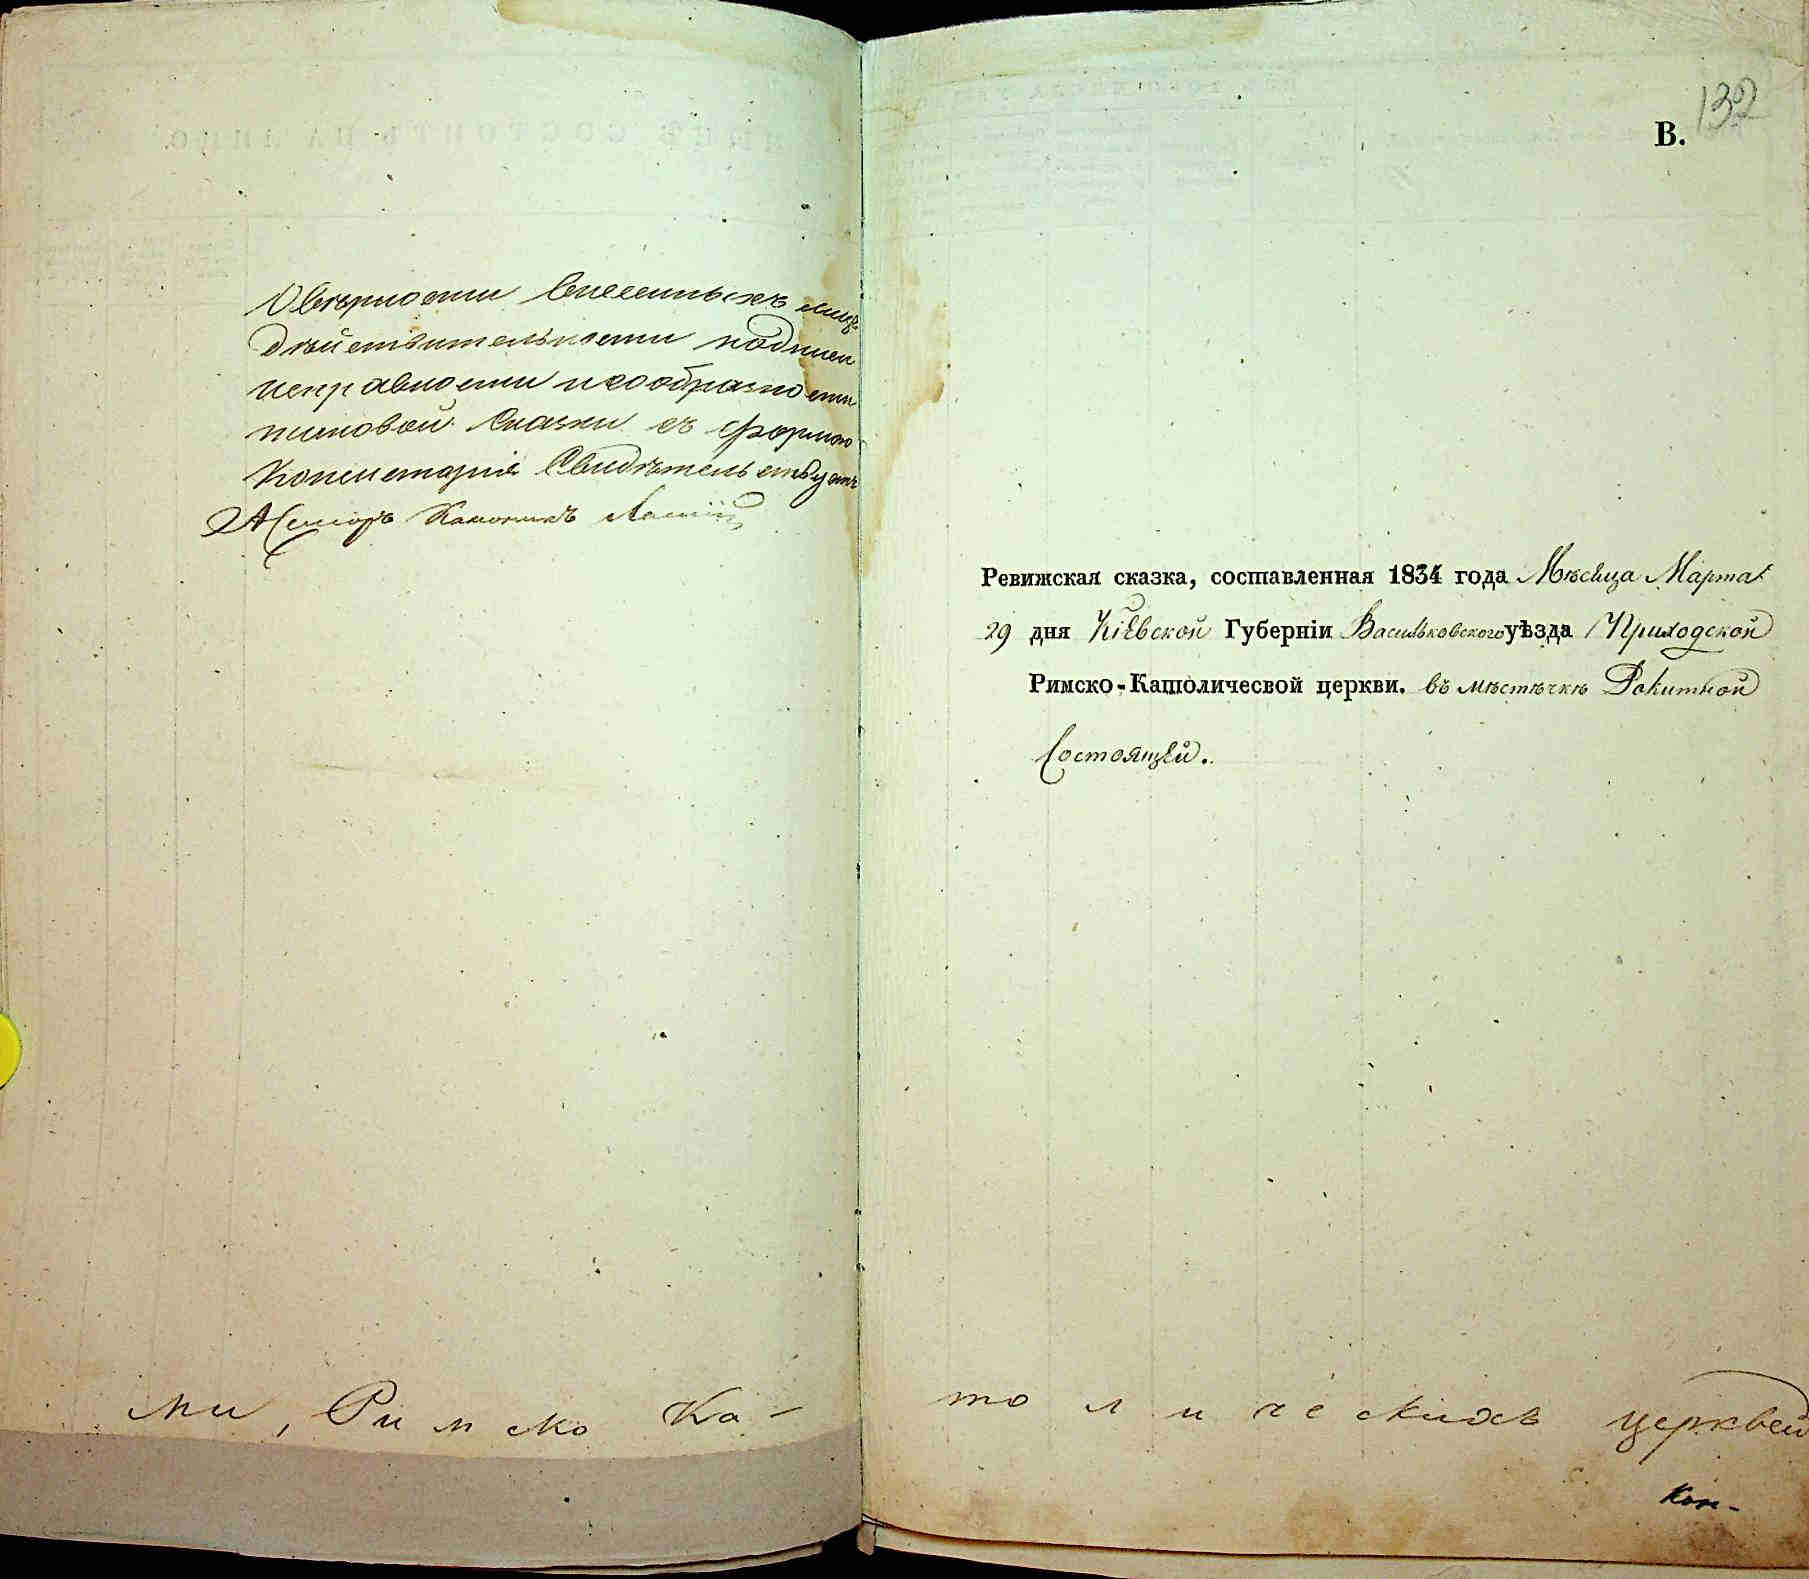 О вѣрности внесенныхъ лицъ
дѣйствительности подписи
исправности и сообразности
таковой сказки съ формою
Консисторія свидѣтельствуетъ
Асессоръ Каноникъ
ми, Римско Ка-
В. 132
Ревижская сказка, составленная 1834 года Мѣсяца Марта
29 дня Кіевской Губерніи Васильковского уѣзда Приходской
Римско-Католичесвой церкви. въ мѣстѣчкѣ Рокитной
Состоящей.
то л и че скихъ церквей
Кон-